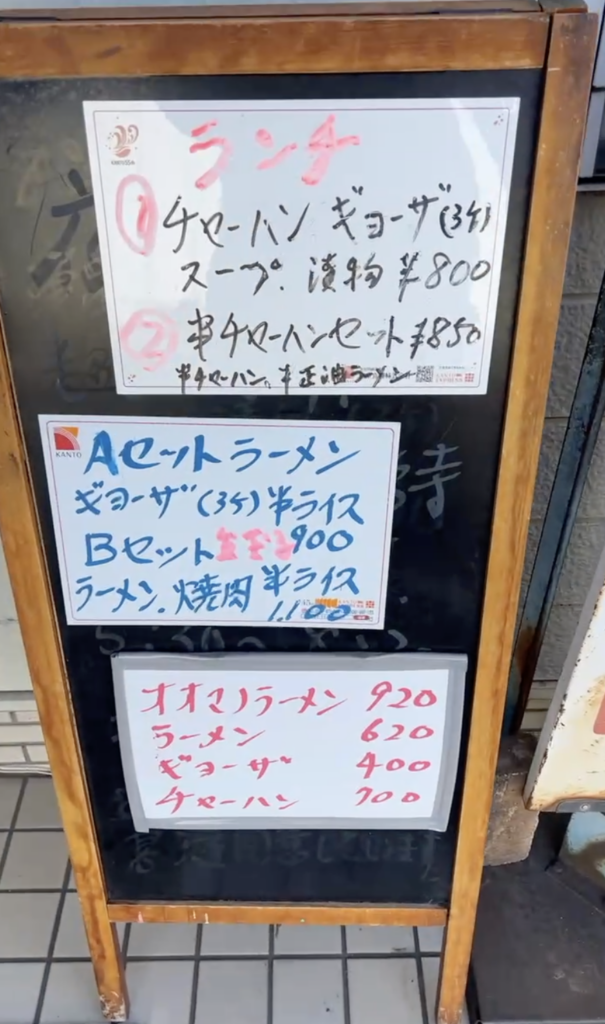 ランチ
① チャーハン ギョーザ(3ケ)
スープ、漬物 ¥800
② 半チャーハンセット ¥850
半チャーハン、半正油ラーメン
KANTO
Aセットラーメン
ギョーザ(3ケ)半ライス
Bセット 900
ラーメン、焼肉 半ライス
1,100
オオマノラーメン 920
ラーメン 620
ギョーザ 400
チャーハン 700